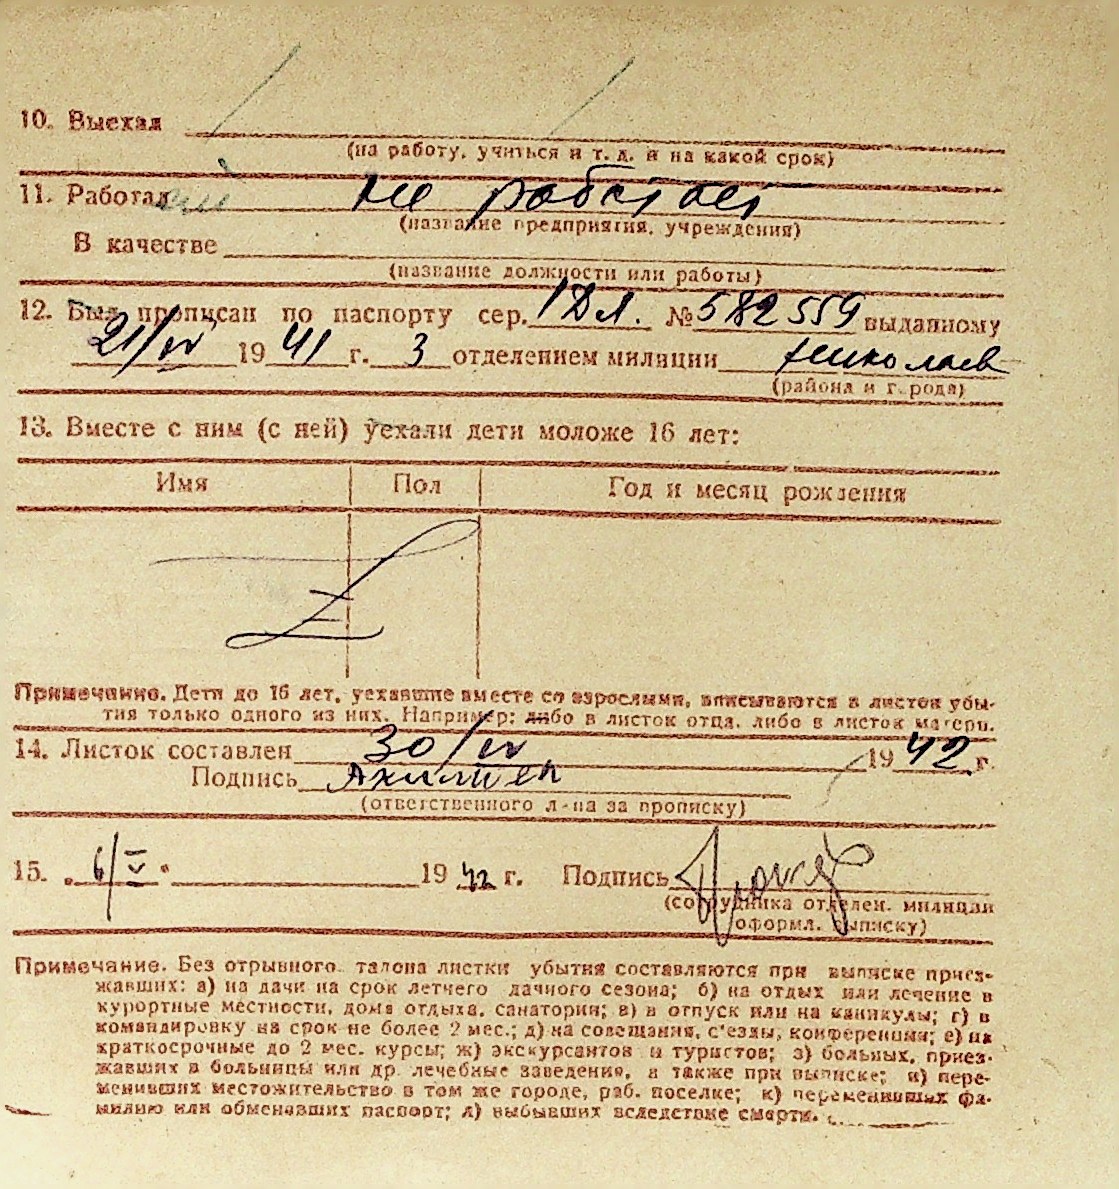 10. Выехал
(на работу, учиться и т. д. и на какой срок)
11. Работал не работает
(название предприятия, учреждения)
В качестве
(название должности или работы)
12. Был прописан по паспорту сер. 1Дл. № 582559 выданному
21/IV 1941 г. 3 отделением милиции Николаев
(района и города)
13. Вместе с ним (с ней) уехали дети моложе 16 лет:
Имя Пол Год и месяц рождения
Примечание. Дети до 16 лет, уехавшие вместе со взрослыми, вписываются в листок убы-
тия только одного из них. Например: либо в листок отца, либо в листок матери.
14. Листок составлен 30/IV 1942 г.
Подпись
(ответственного л-ца за прописку)
15. „ 6/V " 1942 г. Подпись
(сотрудника отделен. милиции
оформл. выписку)
Примечание. Без отрывного талона листки убытия составляются при выписке приез-
жавших: а) на дачи на срок летнего дачного сезона; б) на отдых или лечение в
курортные местности, дома отдыха, санатории; в) в отпуск или на каникулы; г) в
командировку на срок не более 2 мес.; д) на совещания, с'езды, конференции; е) на
краткосрочные до 2 мес. курсы; ж) экскурсантов и туристов; з) больных, приез-
жавших в больницы или др. лечебные заведения, а также при выписке; и) пере-
менивших местожительство в том же городе, раб. поселке; к) переменивших фа-
милию или обменявших паспорт; л) выбывших вследствие смерти.